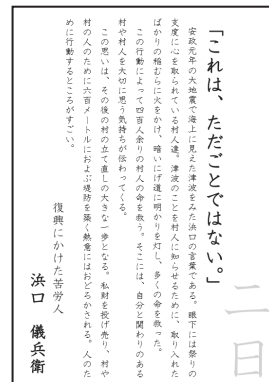 「これは、ただごとではない。」
安政元年の大地震で海上に見えた津波をみた浜口の言葉である。眼下には祭りの
支度に心を取られている村人達。津波のことを村人に知らせるために、取り入れた
ばかりの稲むらに火をかけ、暗いにげ道に明かりを灯し、多くの命を救った。
この行動によって四百人余りの村人の命を救う。そこには、自分と関わりのある
村や村人を大切に思う気持ちが伝わってくる。
この思いは、その後の村の立て直しの大きな一歩となる。私財を投げ売り、村や
村の人のために六百メートルにおよぶ堤防を築く熱意にはおどろかされる。人のた
めに行動するところがすごい。
復興にかけた苦労人
浜口　儀兵衛
二日